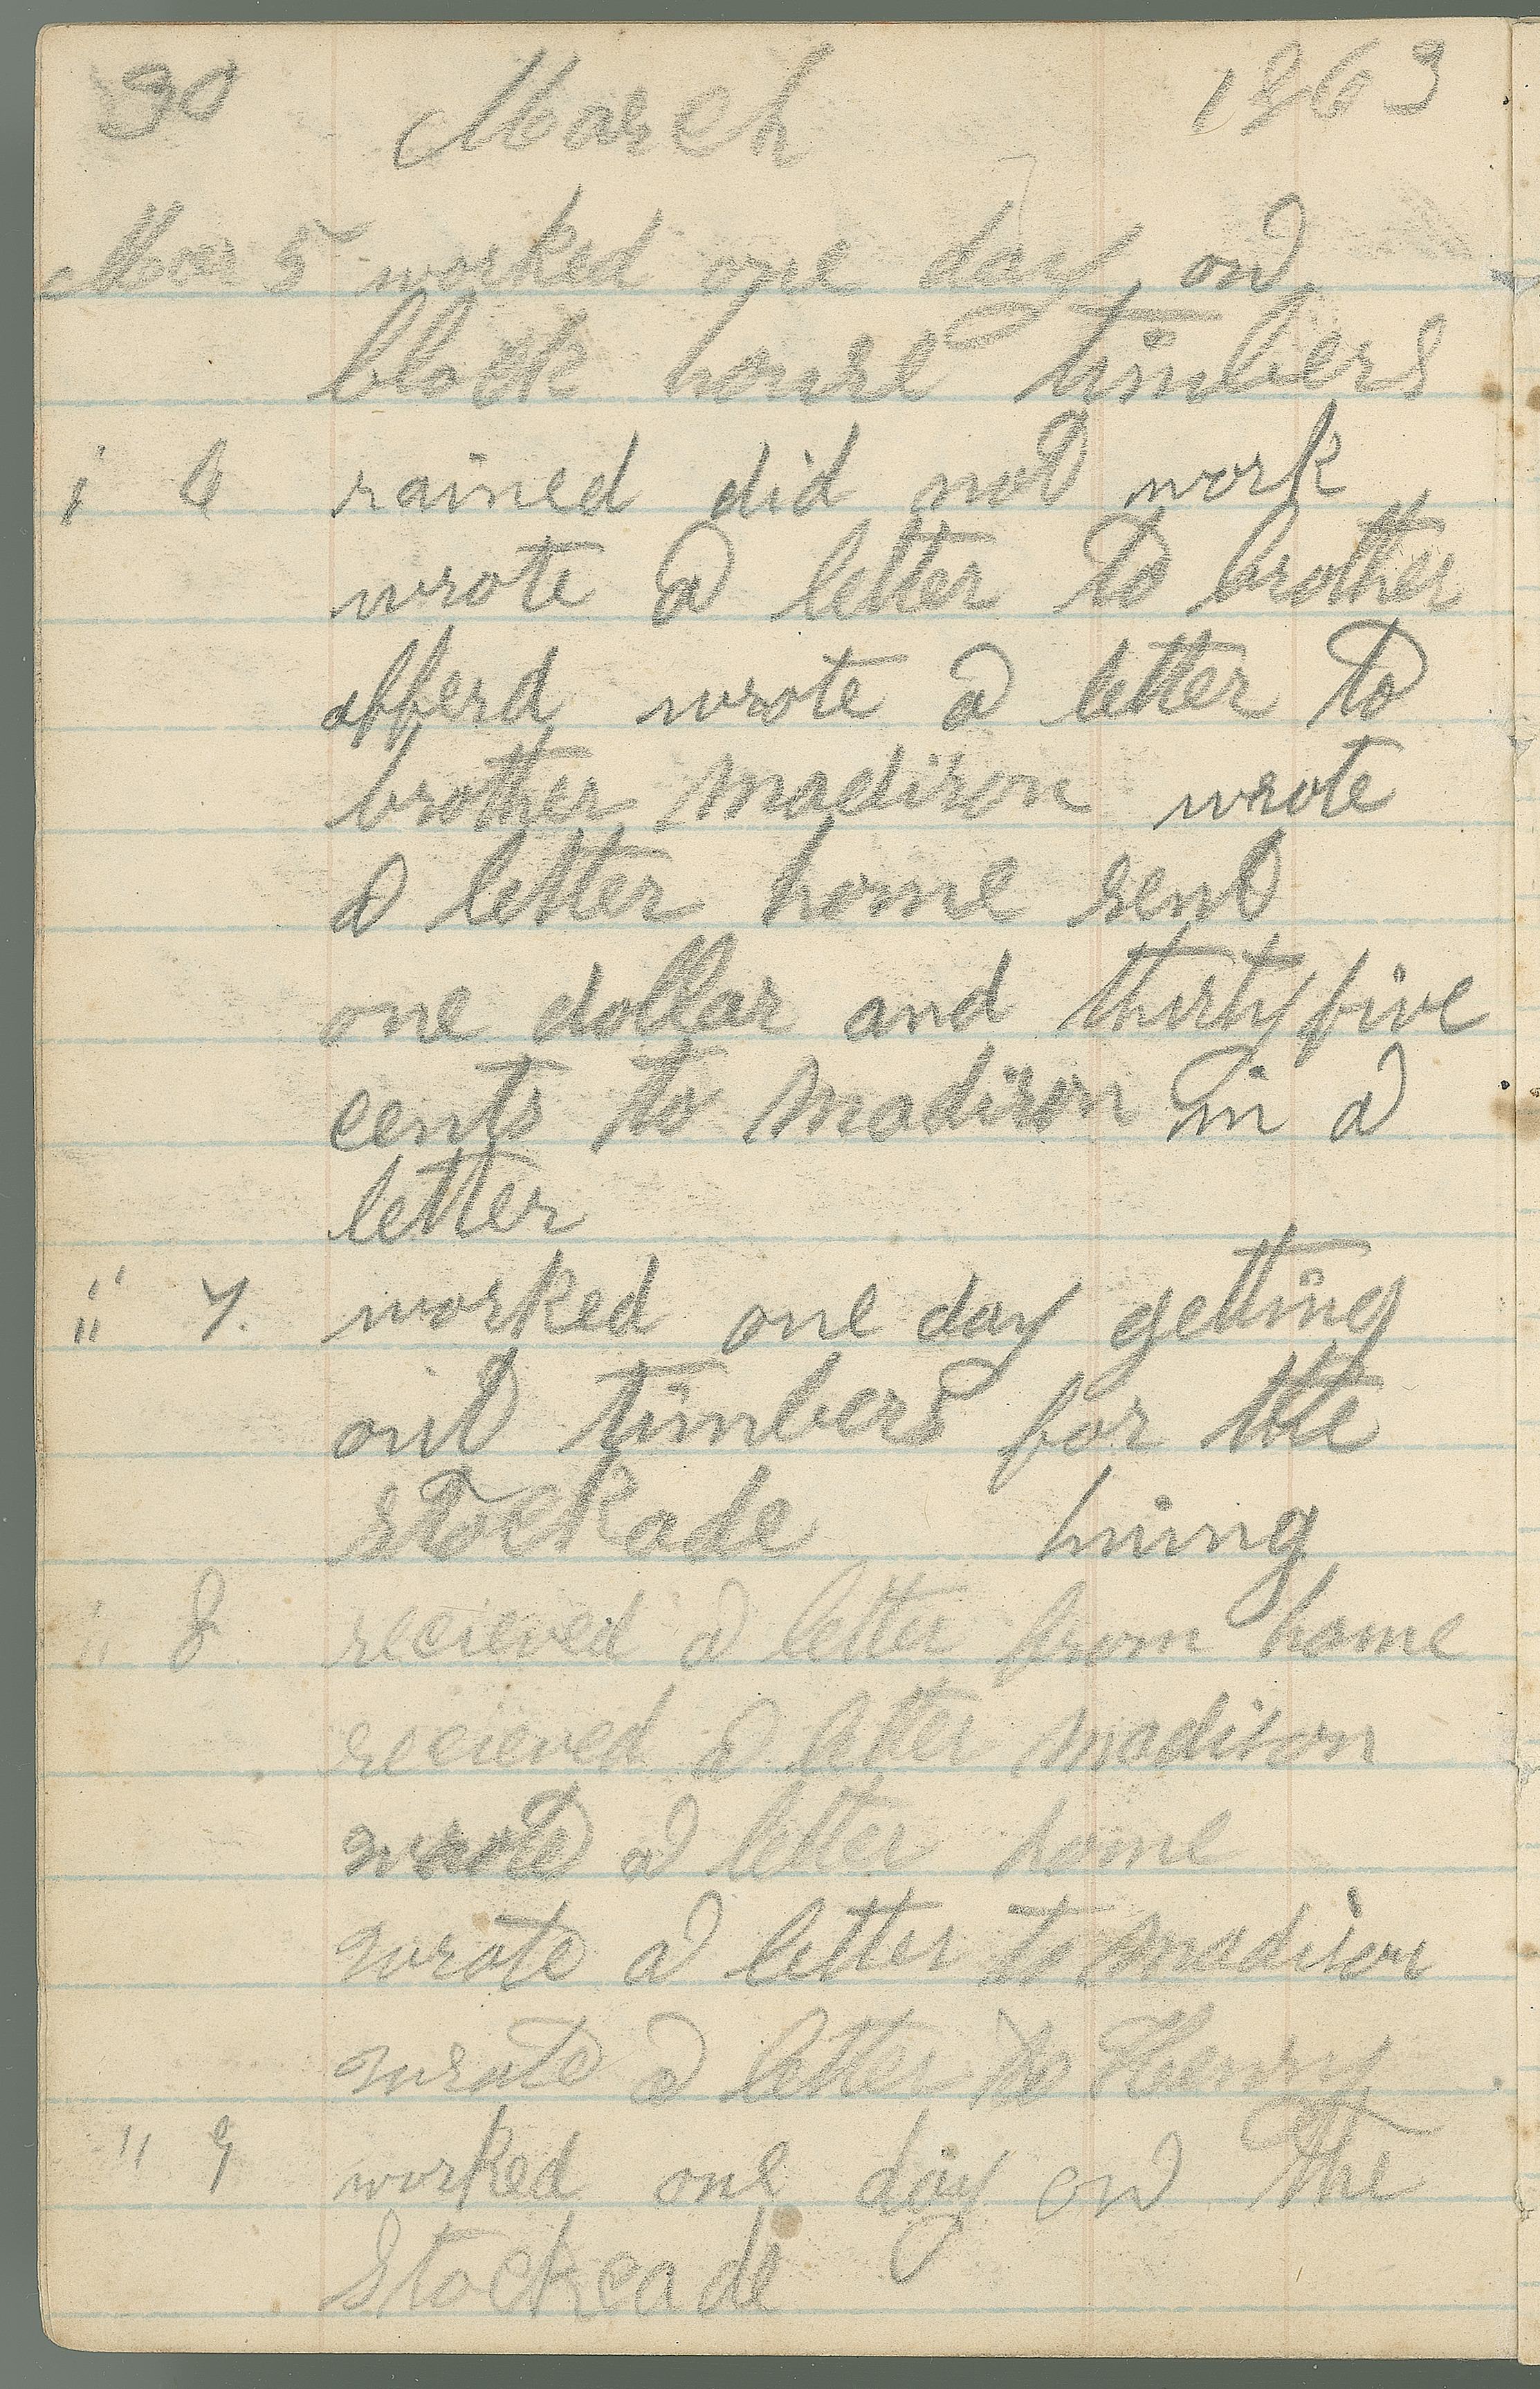 30 March 1863
Mar 5 worked one day on
block house timbers
" 6 rained did not work
wrote a letter to brother
afferd wrote a letter to
brother madison wrote
a letter home sent
one dollar and thirty five
cents to madison in a
letter
" 7. worked one day getting
out timbers for the
stockade hining
" 8. recieved a letter from home
recieved a letter madison
wrote a letter home
wrote a letter to madison
wrote a letter to Henry
" 9 worked one day on the
stockeade